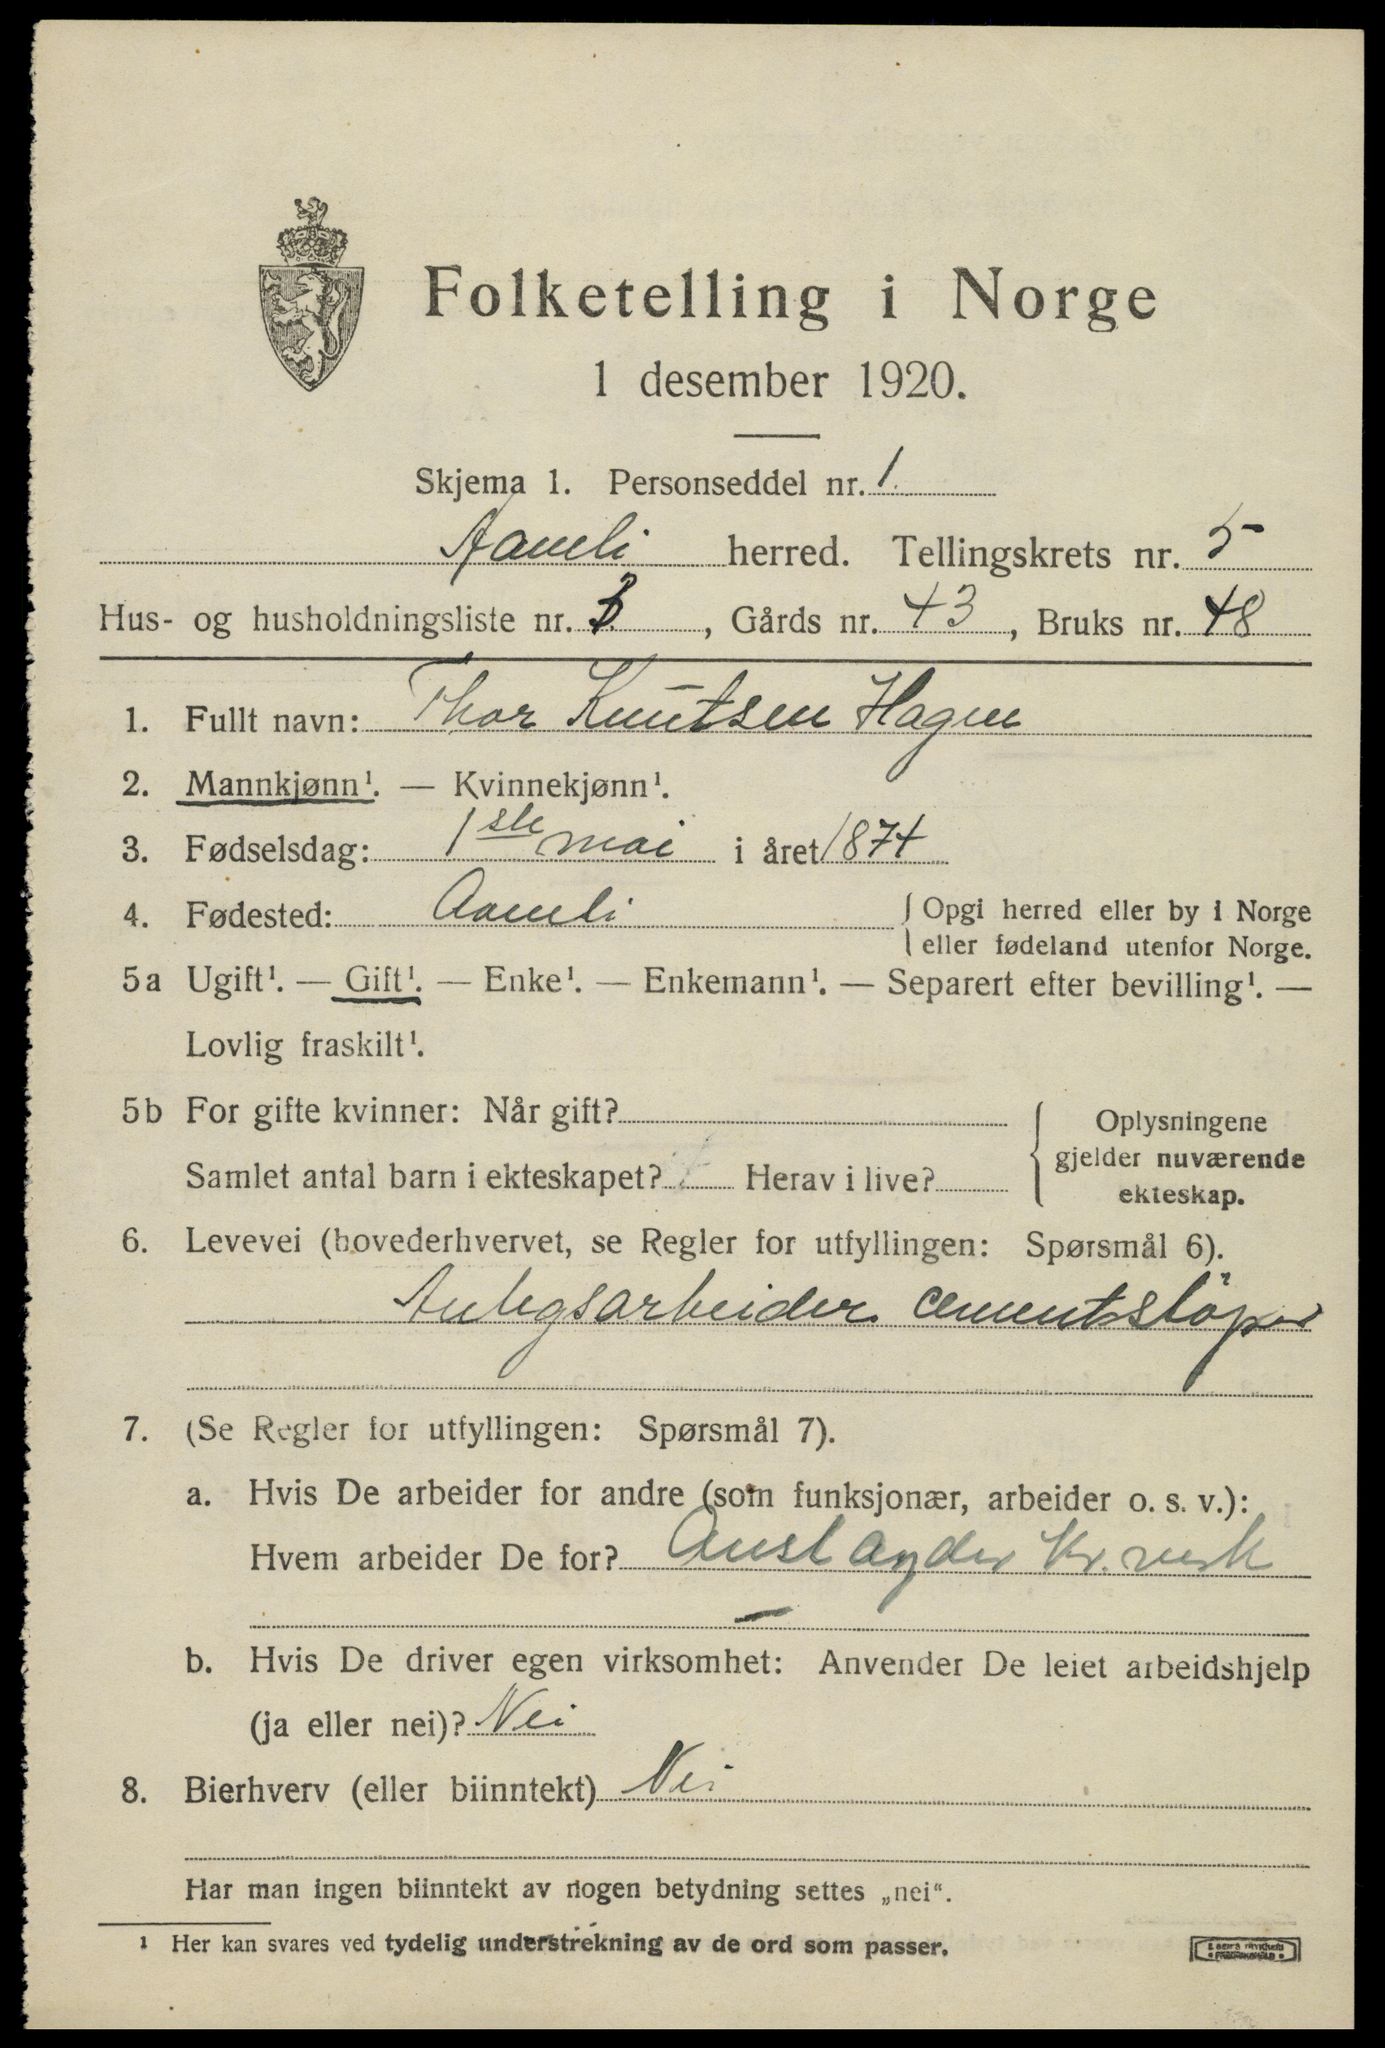 Folketelling i Norge
1 desember 1920.
Skjema 1. Personseddel nr. 1.
Aamli herred. Tellingskrets nr. 5
Hus- og husholdningsliste nr. 3, Gårds nr. 43, Bruks nr. 48
1. Fullt navn: Thor Knutsen Hagen
2. Mannkjønn¹. — Kvinnekjønn¹.
3. Fødselsdag: 1ste mai i året 1874
4. Fødested: Aamli { Opgi herred eller by i Norge
eller fødeland utenfor Norge.
5a Ugift¹. — Gift¹. — Enke¹. — Enkemann¹. — Separert efter bevilling¹. —
Lovlig fraskilt¹.
5b For gifte kvinner: Når gift?
Samlet antal barn i ekteskapet? Herav i live?
Oplysningene
gjelder nuværende
ekteskap.
6. Levevei (hovederhvervet, se Regler for utfyllingen: Spørsmål 6).
Anlegsarbeider. cementstöper
7. (Se Regler for utfyllingen: Spørsmål 7).
a. Hvis De arbeider for andre (som funksjonær, arbeider o. s. v.):
Hvem arbeider De for? Aust Agder Kr. verk
b. Hvis De driver egen virksomhet: Anvender De leiet arbeidshjelp
(ja eller nei)? Nei
8. Bierhverv (eller biinntekt) Nei
Har man ingen biinntekt av nogen betydning settes „nei“.
¹ Her kan svares ved tydelig understrekning av de ord som passer.